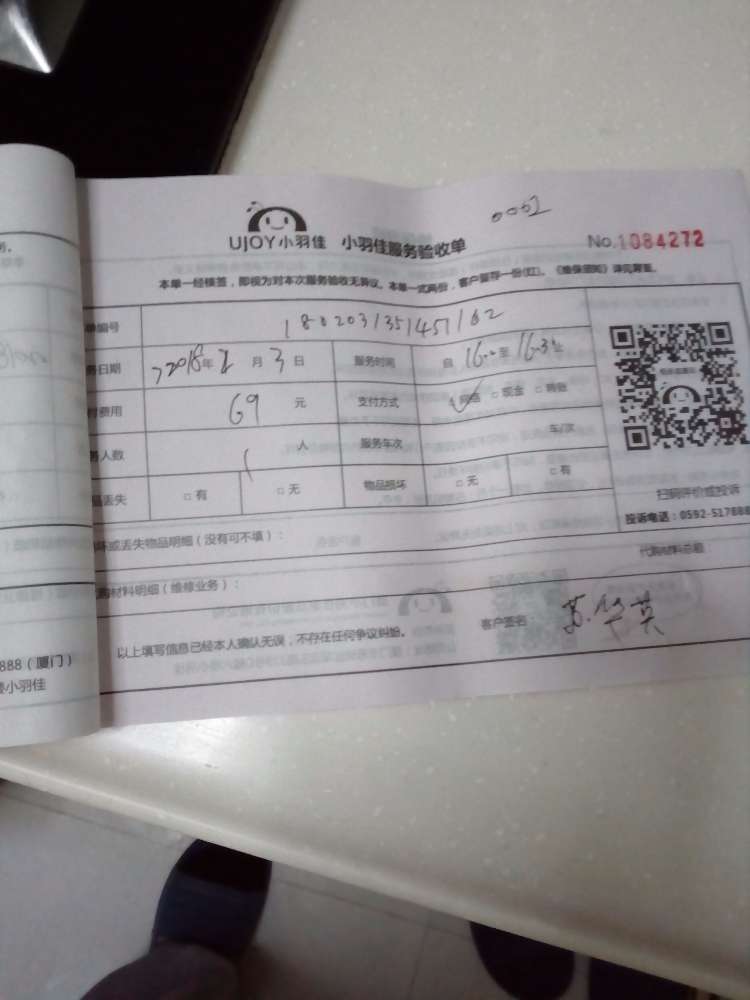 0002
UJOY小羽佳 小羽佳服务验收单
No.1084272
本单一经核签，即视为对本次服务验收无异议。本单一式两份，客户留存一份(红)。《维保须知》详见背面。
单编号 180203135145162
务日期 2018年2月3日 服务时间 自 16:00 至 16:30 止
付费用 69元 支付方式 网络 □现金 □转账
务人数 1人 服务车次 车/次
品丢失 □有 □无 物品损坏 □无 □有
扫码评价或投诉
投诉电话：0592-517888
坏或丢失物品明细（没有可不填）：
代购材料总额
材料明细（维修业务）：
以上填写信息已经本人确认无误，不存在任何争议纠纷。
客户签名： 苏华英
888（厦门）
小羽佳